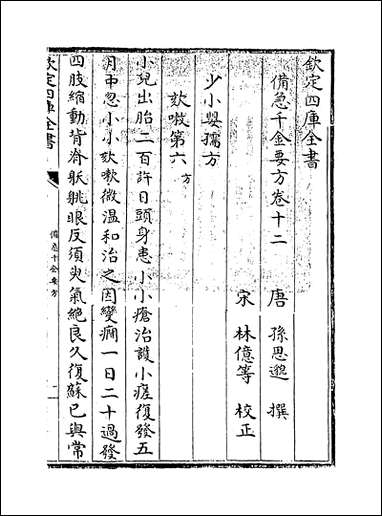 欽定四庫全書
備急千金要方卷十二
唐 孫思邈 撰
宋 林億等 校正
少小嬰孺方
欬嗽第六方
小兒出胎二百許日頭身患小小瘡治護小瘥復發五
月中忽小小欬嗽微温和治之因變癇一日二十過發
四肢縮動背脊躽䠷眼反須臾氣絶良久復蘇已與常
欽定四庫全書
備急千金要方